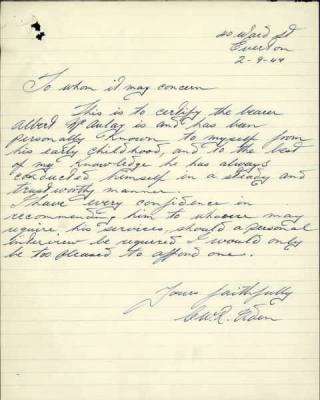 20 Ward St
Everton
2-9-49
To whom it may concern
This is to certify the bearer
Albert McAulay is and has been
personally known to myself from
his early childhood, and to the best
of my knowledge he has always
conducted himself in a steady and
trustworthy manner.
I have every confidence in
recommending him to whoever may
require his services, should a personal
interview be required I would only
be too pleased to afford one.
Yours faithfully